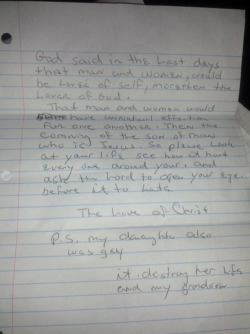 God said in the last days
that man and women, would
be lorse of self, more than the
Lorse of God.
That man and women would
have unnatural effection
For one another. Then the
comming of the son of man
who is Jesus. So please Look
at your life see how it hurt
every one around your, and
ask the Lord to open your eye
before it to late
The Love of Christ
P.S. my daughter also
was gay
it destroy her life
and my grandson